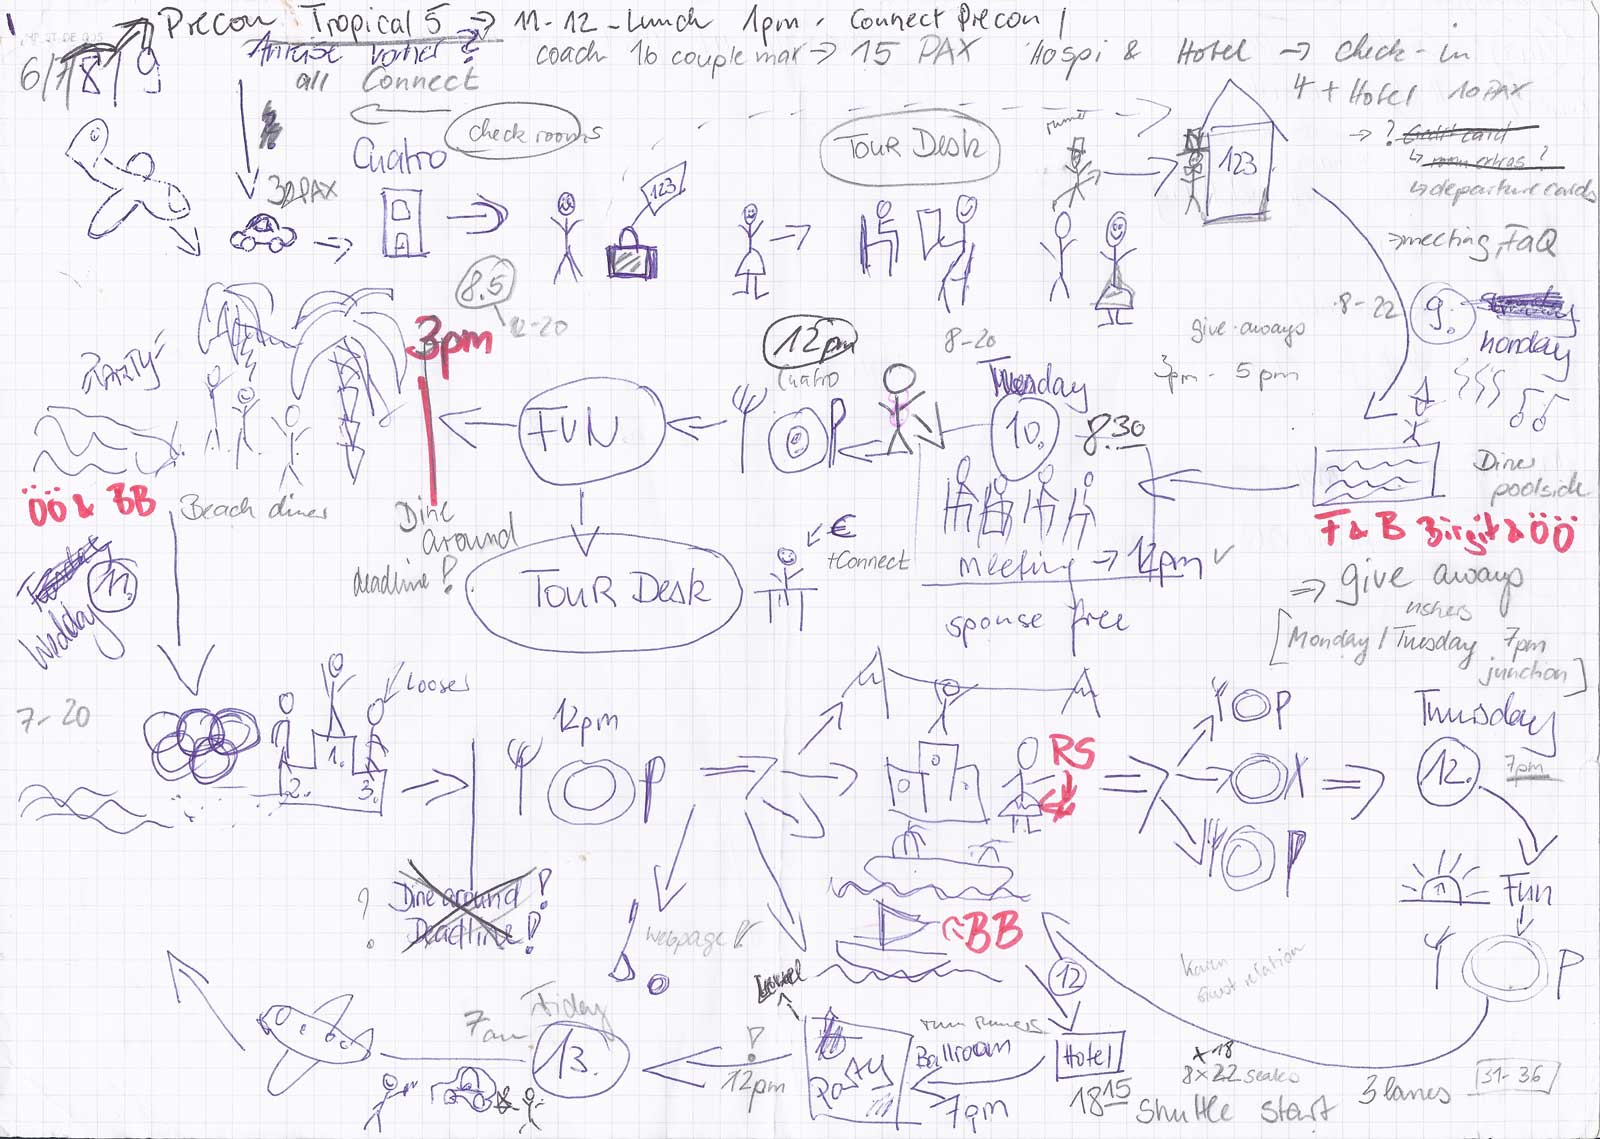 Precon Tropical 5 → 11-12 - Lunch 1pm. Connect Precon /
6/7 8/9 Anreise vorher ? coach 16 couple max → 15 PAX Hospi & Hotel → check-in
all Connect
4 + Hotel 10 PAX
check rooms
→ ? Credit card
↳ room extras ?
↳ departure cards
Cuatro
TOUR DESK
runner
32 PAX
123
123
→ meeting, FaQ
8.5
12-20
8-22
9.
Monday
3pm
PARTY
12pm
Cuatro
8-20
give-aways
3pm - 5pm
Tuesday
10.
8.30
FUN
Diner poolside
ÖÖ & BB
Beach diner
Dine around
deadline!
€
+Connect
meeting → 12pm
F & B Birgit & ÖÖ
TOUR DESK
spouse free
⇒ give aways
ushers
[Monday / Tuesday 7pm
junction]
11.
Wedday
7-20
Looser
1.
2.
3.
12pm
RS
Thursday
12.
7pm
Fun
Dine around!
Deadline!
?
webpage!
BB
12
Karin
Guest relation
Friday
7am
13.
12pm
PARTY
run runners
Ballroom
7pm
Hotel
18 15
+18
8x22 seats
Shuttle start
3 lanes
31-36